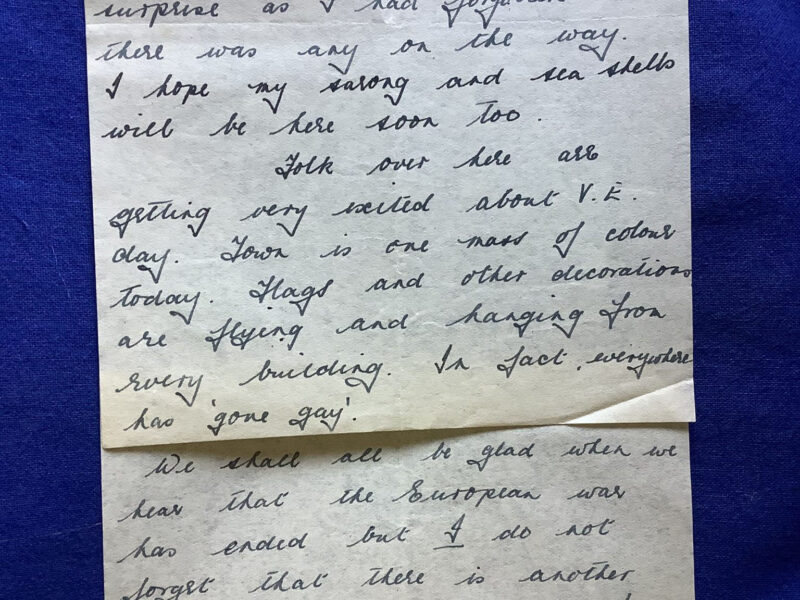 surprise as I had forgotten
there was any on the way.
I hope my sarong and sea shells
will be here soon too.
Folk over here are
getting very excited about V.E.
day. Town is one mass of colour
today. Flags and other decorations
are flying and hanging from
every building. In fact, everywhere
has 'gone gay'.
We shall all be glad when we
hear that the European war
has ended but I do not
forget that there is another